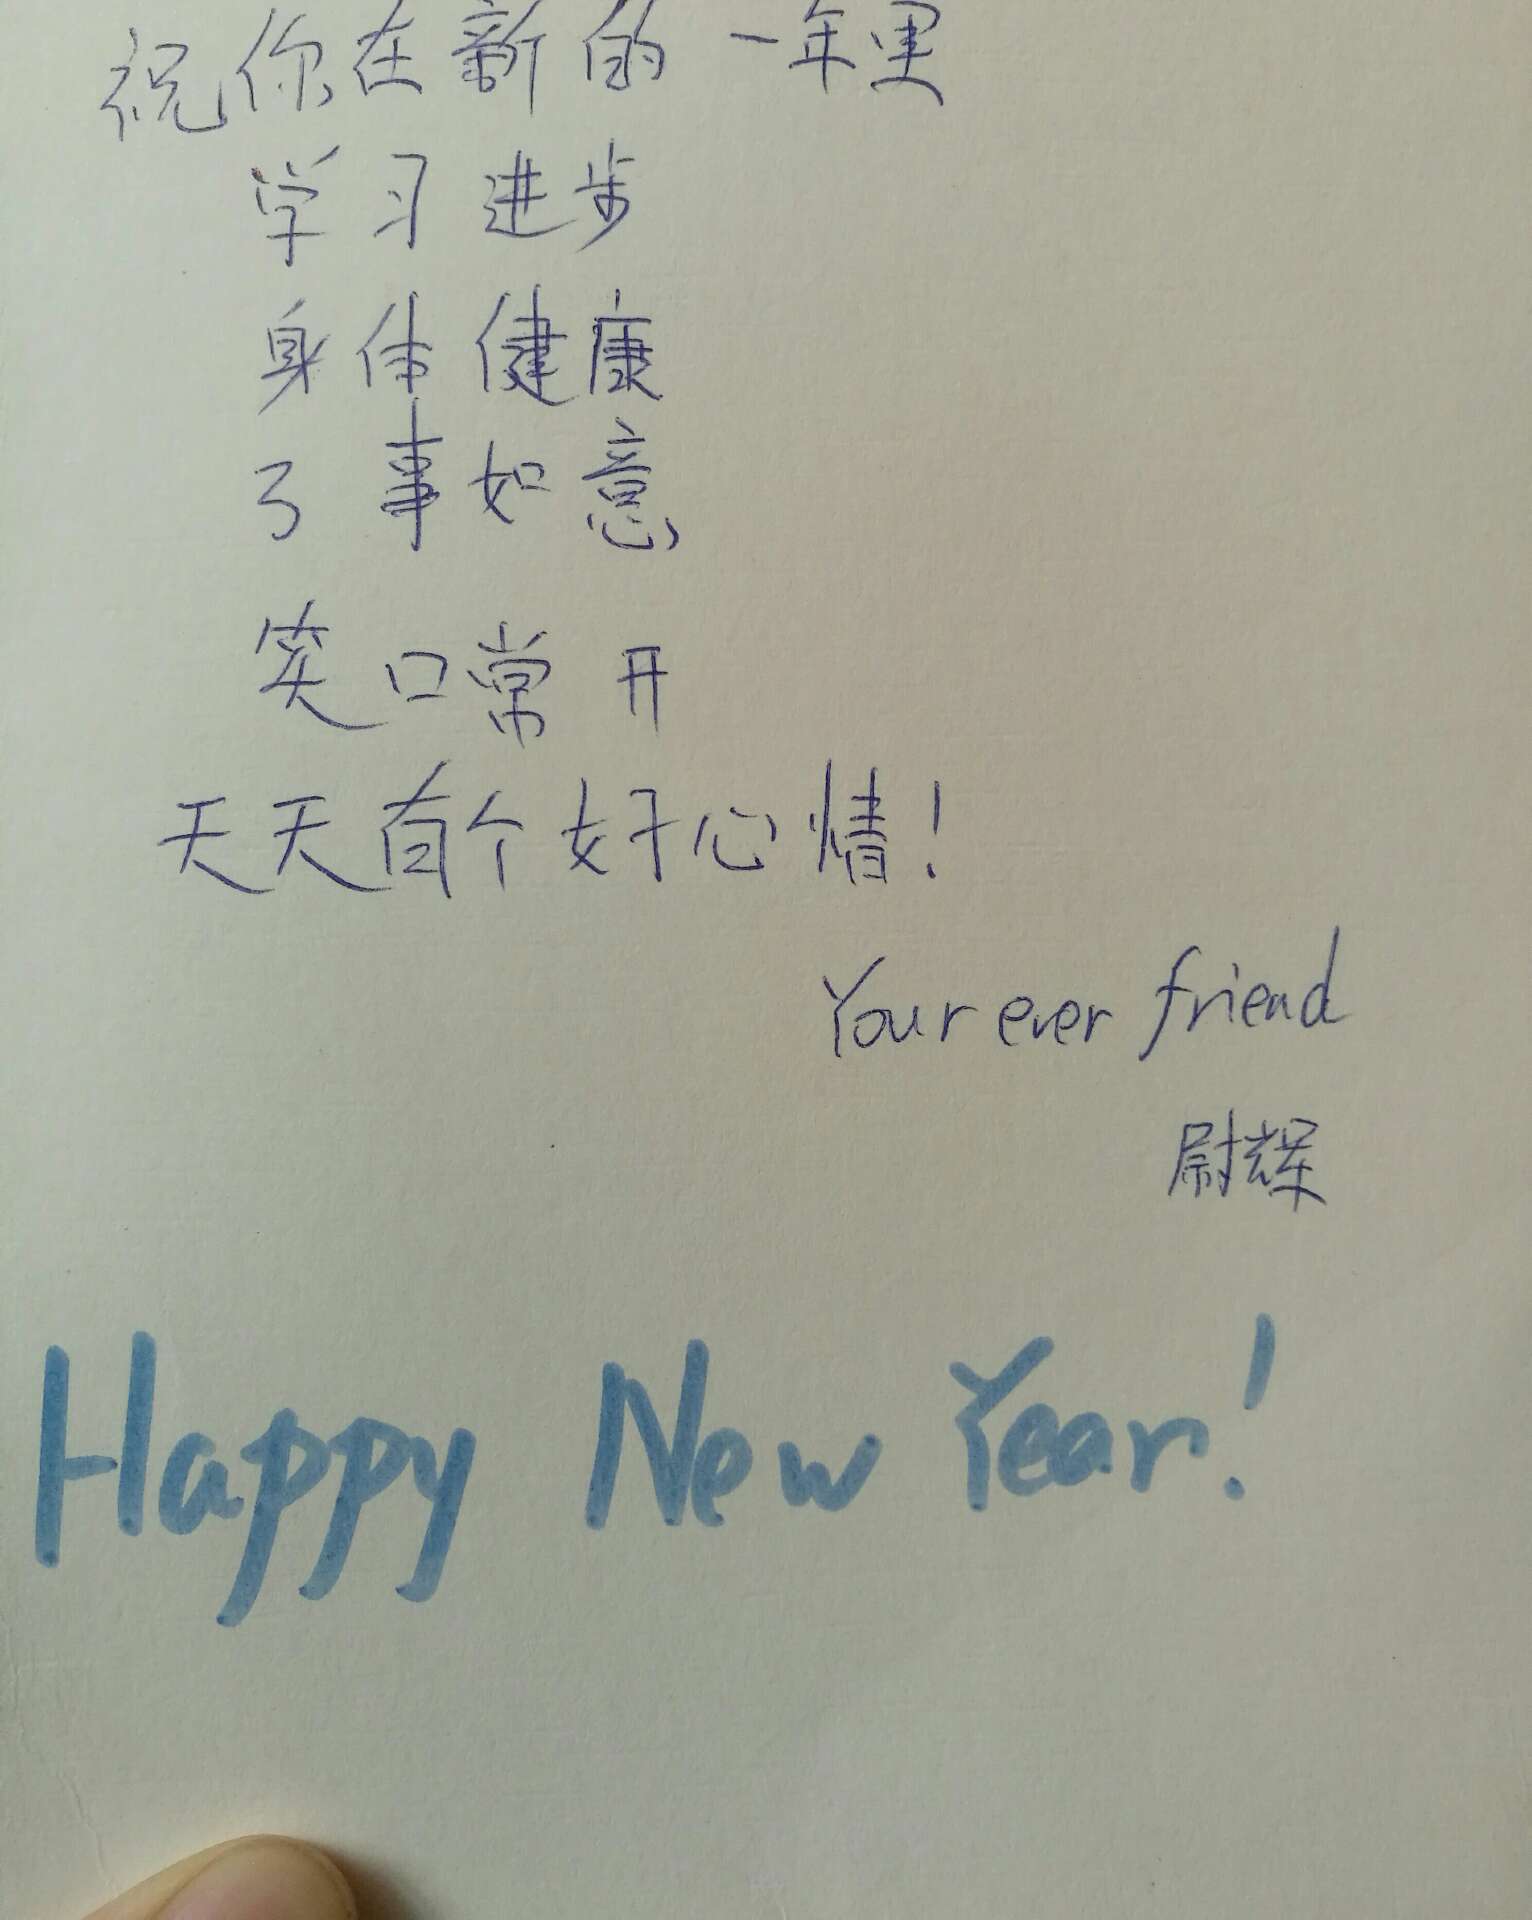 祝你在新的一年里
学习进步
身体健康
万事如意
笑口常开
天天有个好心情！
Your ever friend
尉辉
Happy New Year!